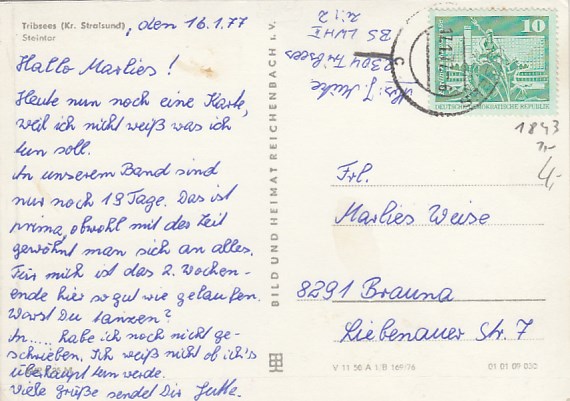 Tribsees (Kr. Stralsund)
Steintor
, den 16.1.77
Hallo Marlies!
Heute nun noch eine Karte,
weil ich nicht weiß was ich
tun soll.
In unserem Band sind
nur noch 19 Tage. Das ist
prima, obwohl mit der Zeit
gewöhnt man sich an alles.
Für mich ist das 2. Wochen-
ende hier so gut wie gelaufen.
Warst Du tanzen?
In..... habe ich noch nicht ge-
schrieben. Ich weiß nicht ob ich's
überhaupt tun werde.
Viele Grüße sendet Dir Jutta.
BILD UND HEIMAT REICHENBACH i. V.
Abs: J.
2304 Tribsees
BS
Zi. 2
10
DEUTSCHE DEMOKRATISCHE REPUBLIK
1843
4,-
Frl.
Marlies Weise
8291 Brauna
Liebenauer Str. 7
V 11 50 A 1/B 169/76
01 01 09 030